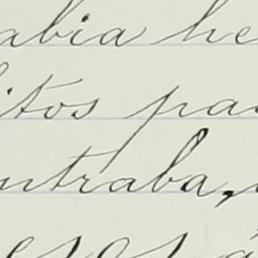 abia he
itos pa
ntraba,
esos á